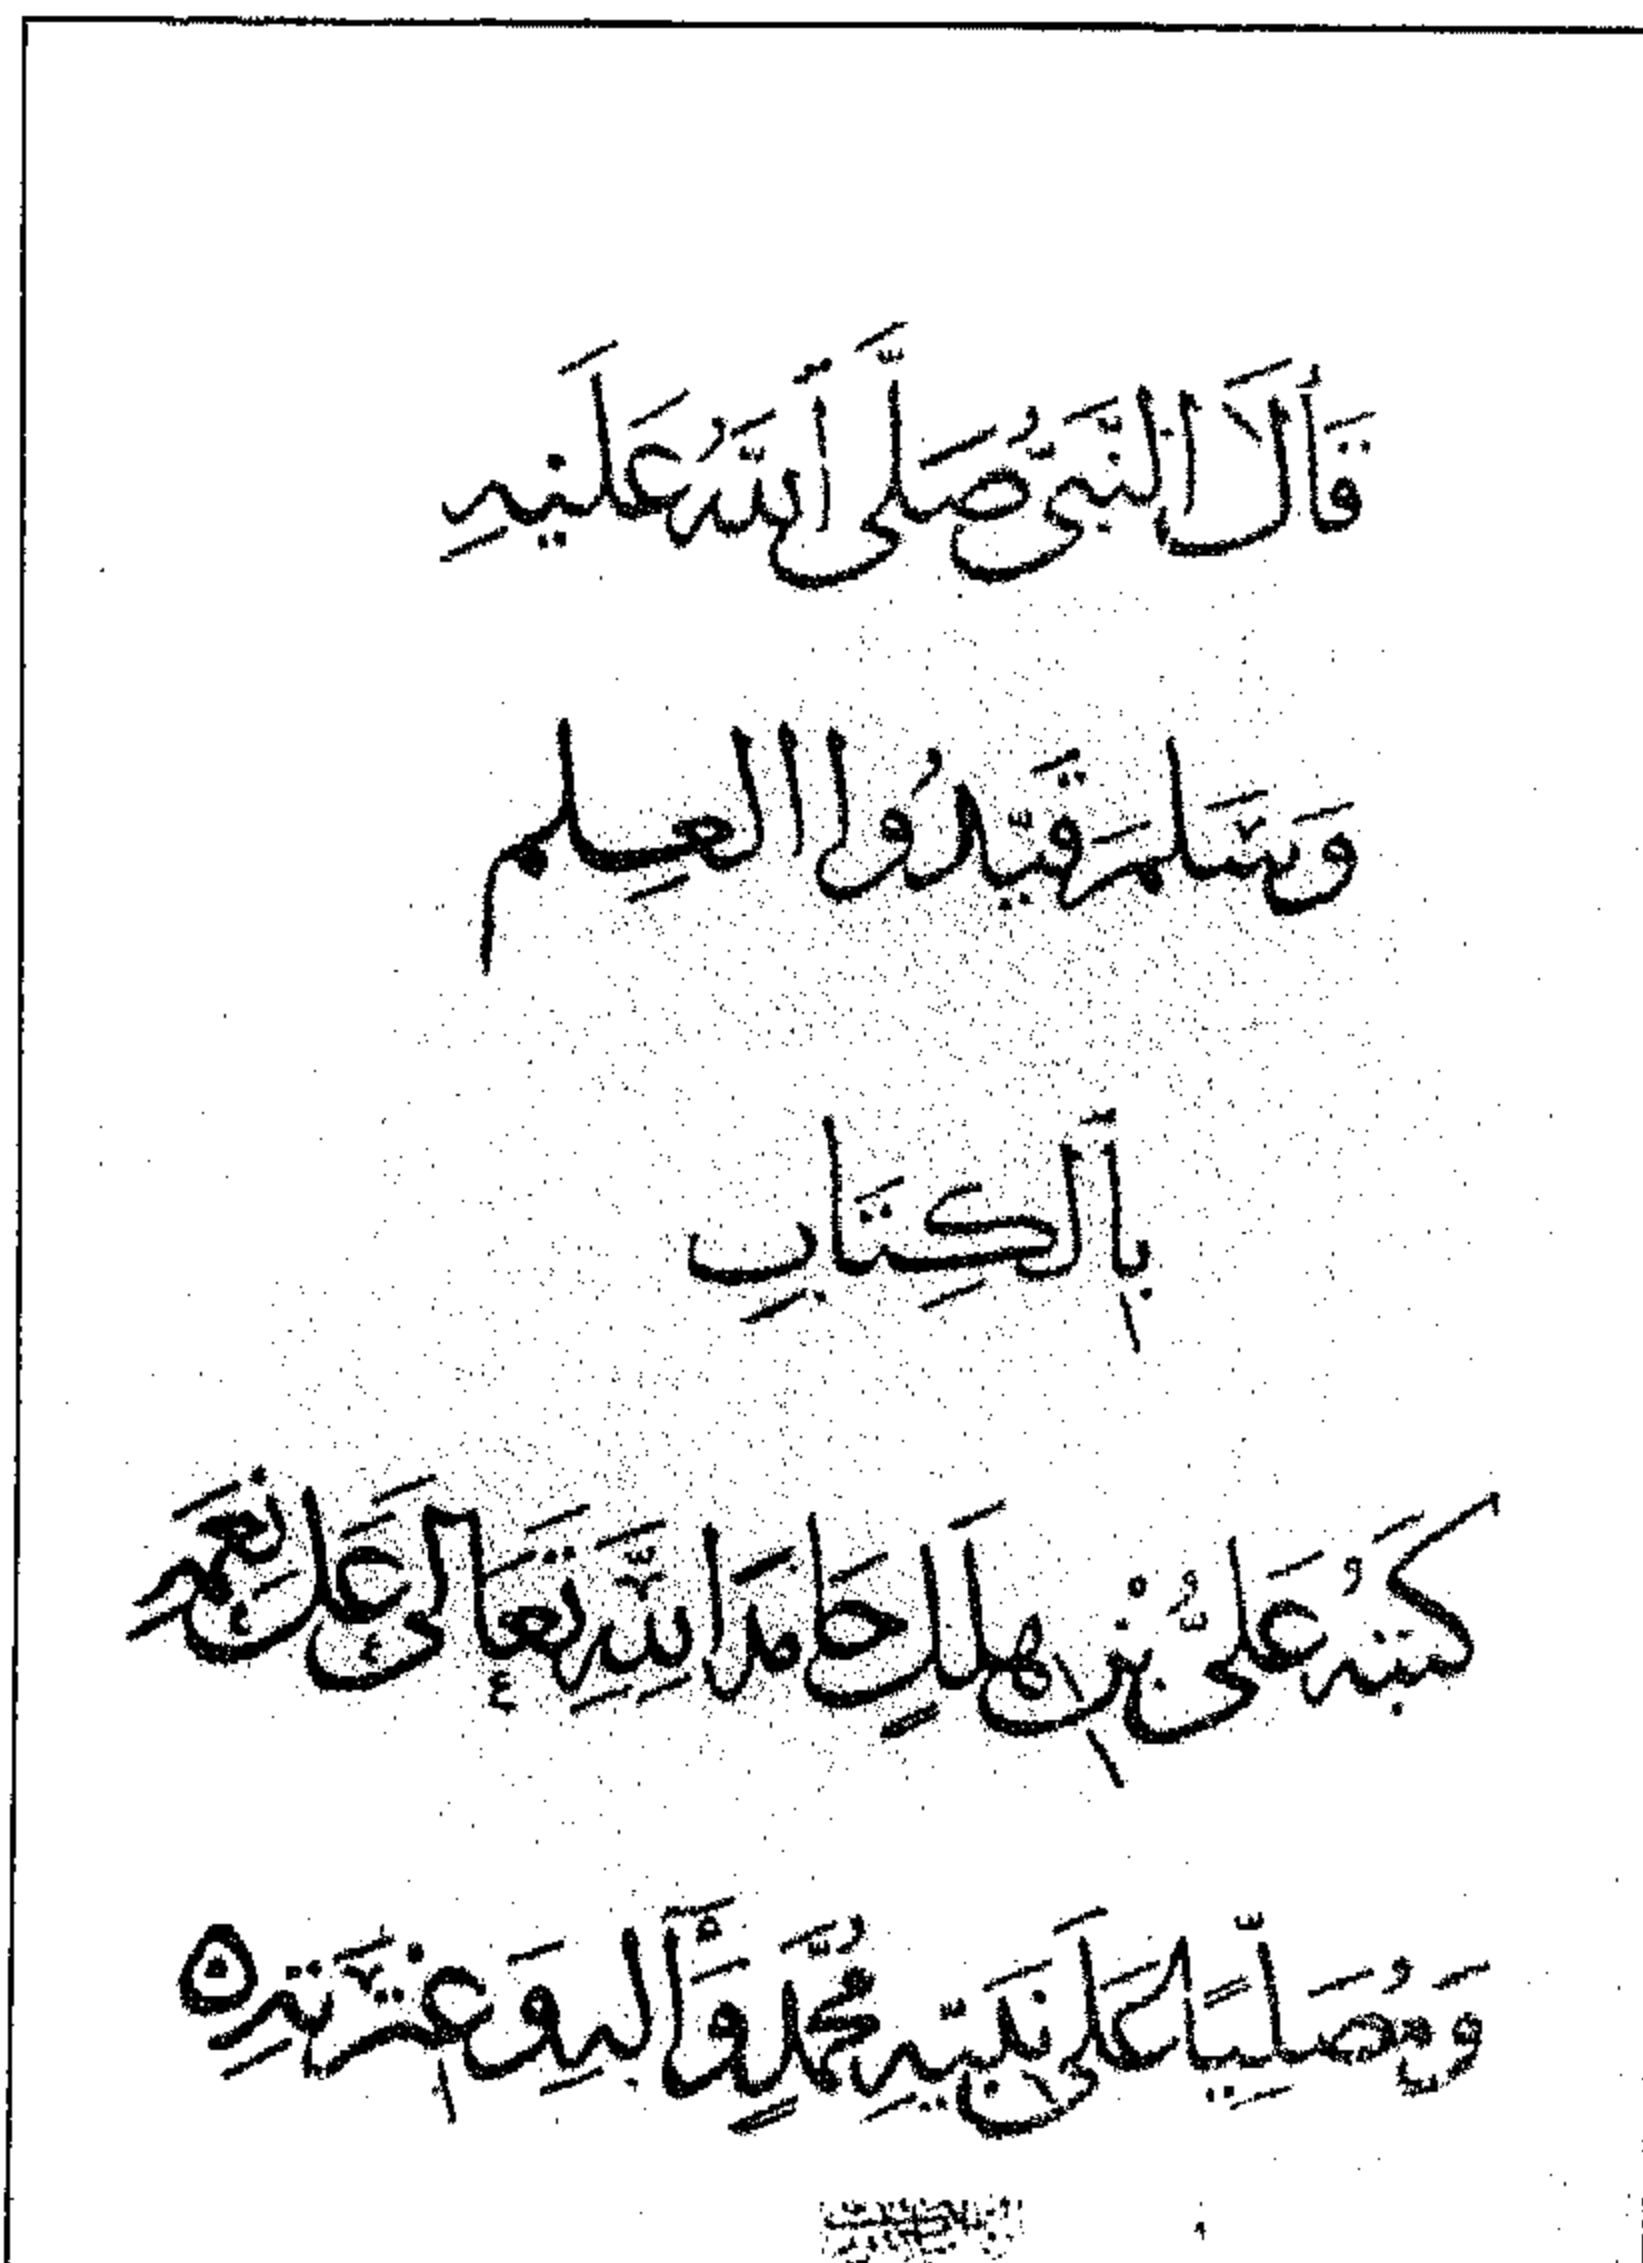 قَالَ النَّبِىُّ صَلَّى اللّٰهُ عَلَيْهِ
وَسَلَّمَ قَيِّدُوا العِلم
بِالكِتَابِ
كَتَبَهُ عَلىُّ بْنُ هِلَلٍ حَامِدًا لِلّٰهِ تَعَالَى عَلَى نِعَمِهِ
وَمُصَلِّيًا عَلَى نَبِيِّهِ مُحَمَّدٍ وَّآلِهِ وَعِتْرَتِهِ